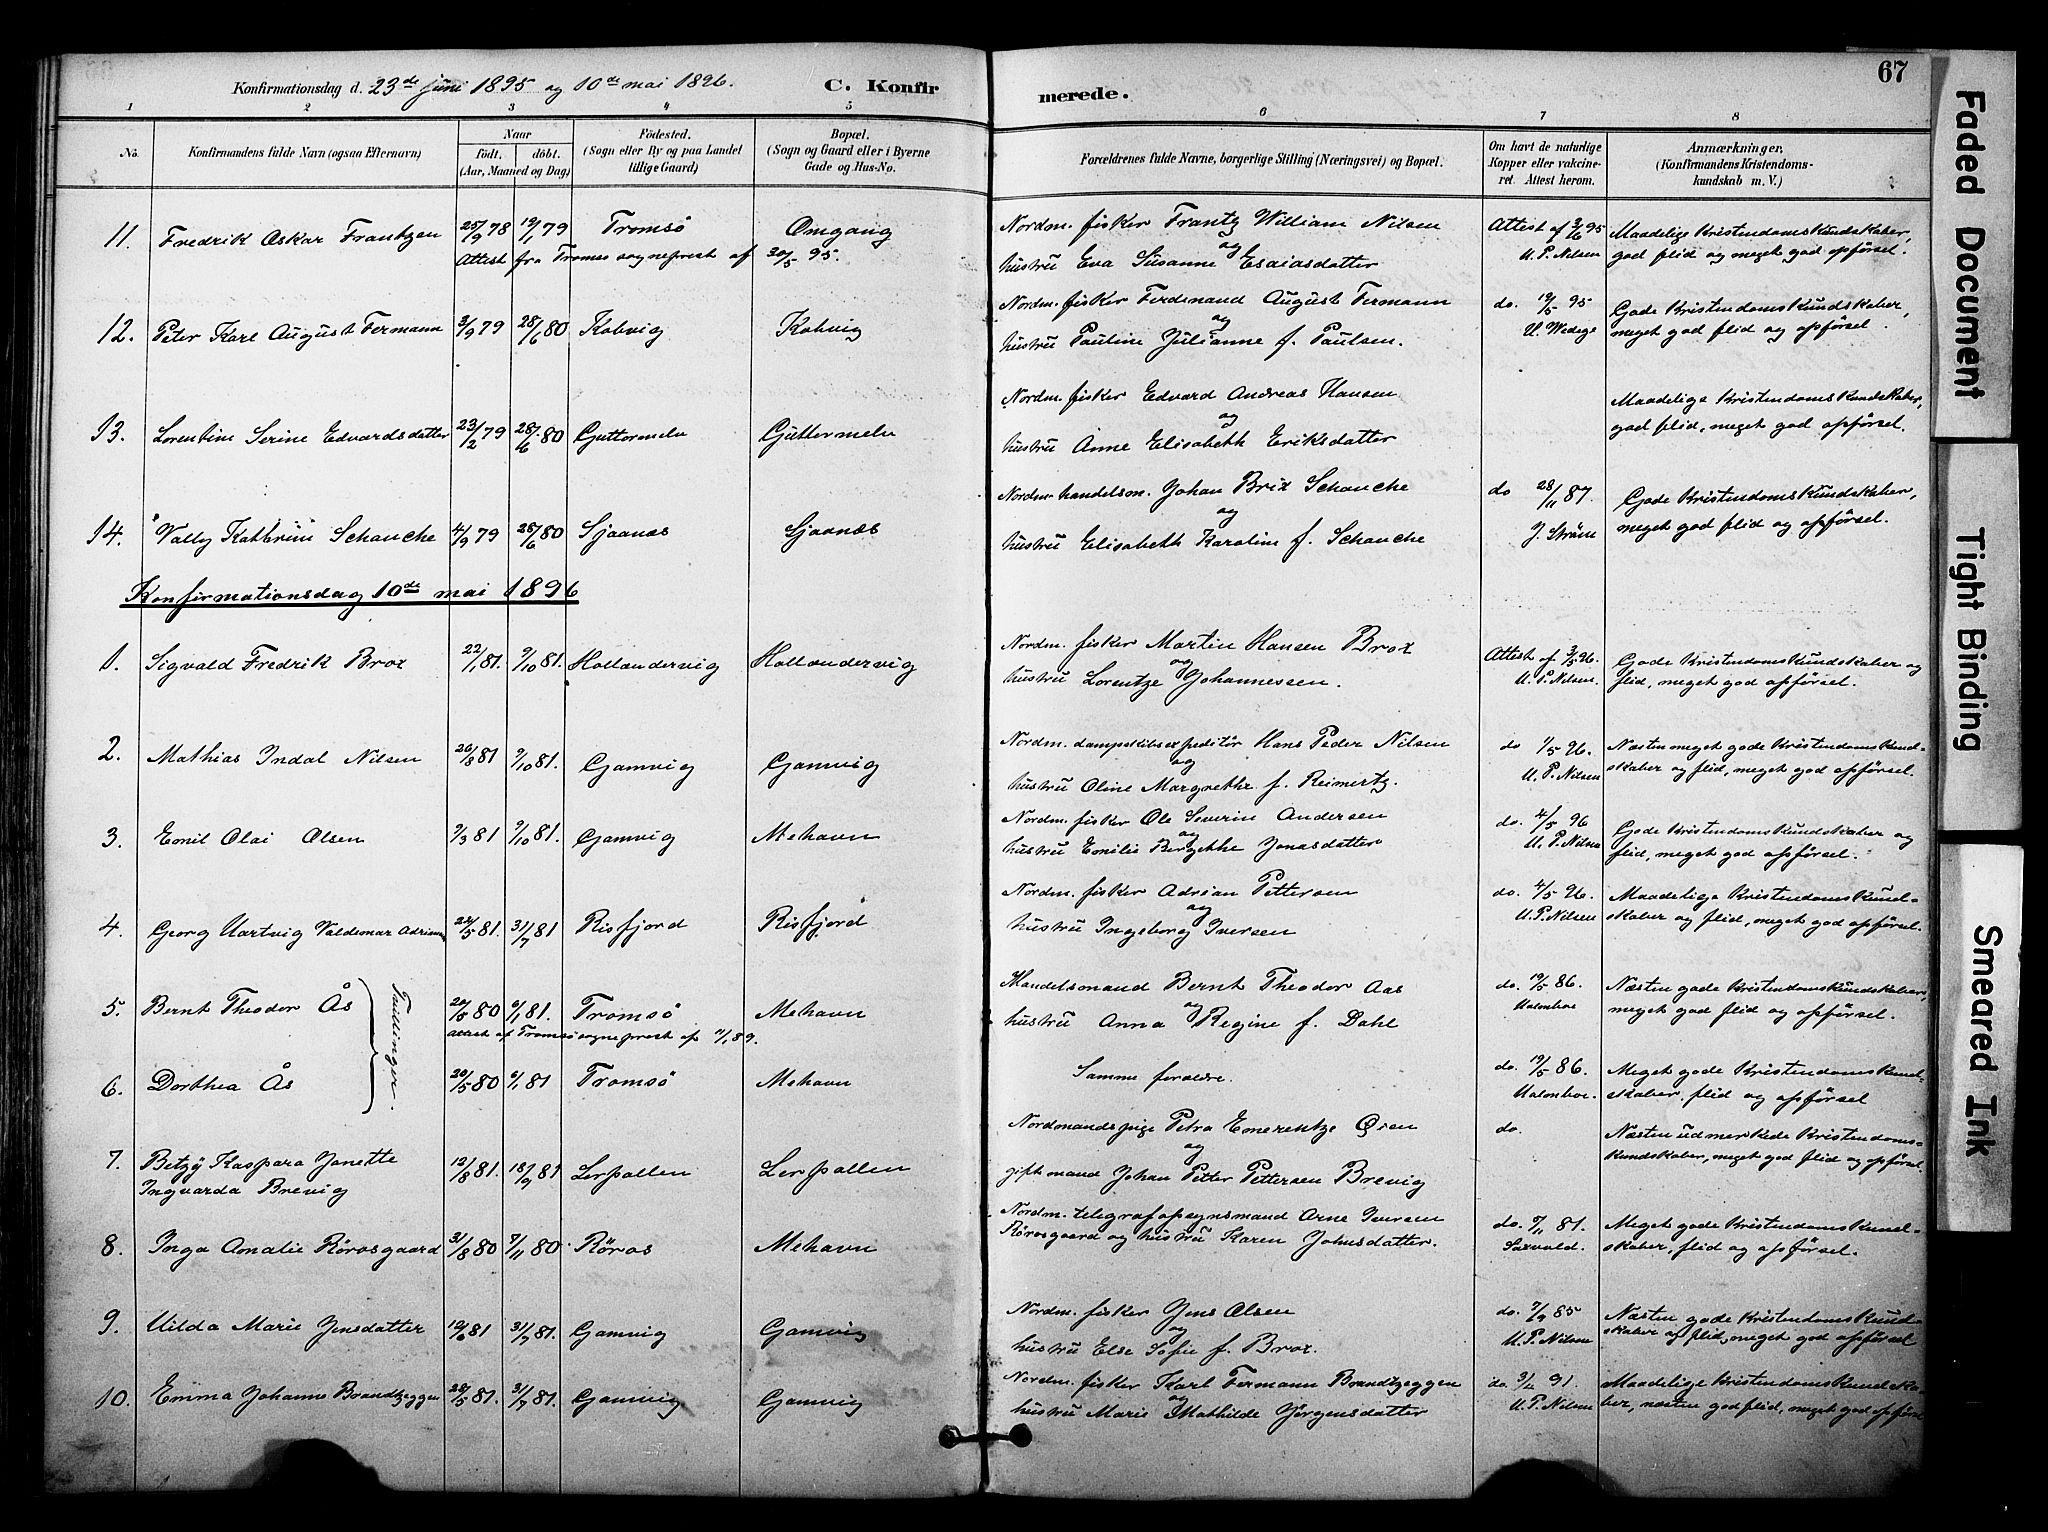 67
Konfirmationsdag d. 23de juni 1895 og 10de mai 1896. C. Konfirmerede.
1 2 3 4 5 6 7 8
No. Konfirmandens fulde Navn (ogsaa Efternavn) Naar født. døbt. (Aar, Maaned og Dag) Fødested. (Sogn eller By og paa Landet tillige Gaard) Bopæl. (Sogn og Gaard eller i Byerne Gade og Hus-No. Forældrenes fulde Navne, borgerlige Stilling (Næringsvei) og Bopæl. Om havt de naturlige Kopper eller vakcineret. Attest herom. Anmærkninger, (Konfirmandens Kristendomskundskab m. V.)
11. Fredrik Oskar Frantzen 25/9 78 19/1 79 Tromsö Omgang Nordm. fisker Frantz William Nilsen og Attest af 2/6 95 Maadelige Kristendomskundskaber,
Attest fra Tromsö sogneprest af 30/5 95. hustru Eva Susanne Esaiasdatter U. P. Nilsen god flid og meget god opförsel.
12. Peter Karl August Fermann 3/9 79 28/6 80 Kobvig Kobvig Nordm. fisker Ferdinand August Fermann og do. 19/5 95 Gode Kristendomskundskaber,
hustru Pauline Julianne f. Paulsen. U. Wedege meget god flid og opförsel.
13. Lorentine Serine Edvardsdatter 23/2 79 28/6 80 Guttormelv Guttormelv Nordm. fisker Edvard Andreas Hansen og Maadelige Kristendomskundskaber,
hustru Anne Elisabeth Eriksdatter god flid, meget god opförsel.
14. Vally Kathrine Schanche 4/9 79 28/6 80 Sjaanæs Sjaanæs Nordm. handelsm. Johan Brix Schanche og do 28/11 87 Gode Kristendomskundskaber,
hustru Elisabeth Karoline f. Schanche J. Ström meget god flid og opförsel.
Konfirmationsdag 10de mai 1896
1. Sigvald Fredrik Brox 22/1 81. 9/10 81. Hollandervig Hollandervig Nordm. fisker Martin Hansen Brox og Attest af 3/5 96. Gode Kristendomskundskaber og
hustru Lorentze Johannessen. U. P. Nilsen. flid, meget god opförsel.
2. Mathias Indal Nilsen 26/8 81 9/10 81. Gamvig Gamvig Nordm. dampskibsexpeditör Hans Peder Nilsen og do 1/5 96. Næsten meget gode Kristendomskund-
hustru Oline Margrethe f. Reimertz. U. P. Nilsen skaber og flid, meget god opförsel.
3. Emil Olai Olsen 9/3 81 9/10 81. Gamvig Mehavn Nordm. fisker Ole Severin Andersen og do. 4/5 96 Gode Kristendomskundskaber og
hustru Emilie Bergethe Jonasdatter U. P. Nilsen flid, meget god opförsel.
4. Georg Hartvig Valdemar 22/5 81. 31/7 81 Risfjord Risfjord Nordm. fisker Adrian Pettersen og do. 4/5 96. Maadelige Kristendomskund-
hustru Ingeborg Iversen U. P. Nilsen skaber og flid, meget god opförsel.
5. Bernt Theodor Ås Tvillinger. 20/5 80 6/1 81. Tromsö Mehavn Handelsmand Bernt Theodor Aas og do. 19/5 86. Næsten gode Kristendomskundskaber,
attest af Tromsö sogneprest af 11/1 89. hustru Anna Regine f. Dahl Holmboe meget god flid og opförsel.
6. Dorthea Ås 20/5 80 6/1 81 Tromsö Mehavn Samme forældre. do. 19/5 86. Meget gode Kristendomskund-
Holmboe. skaber flid og opförsel
7. Betzy Kaspara Janette 12/8 81. 18/9 81 Lerpollen Lerpollen Nordmandspige Petra Emerentze Öien og do. Næsten udmerkede Kristendoms-
Ingvarda Brevig gift mand Johan Petter Pettersen Brevig kundskaber, meget god flid og opförsel.
8. Inga Amalie Rörosgaard 31/8 80 7/11 80 Röros Mehavn Nordm. telegrafopsynsmand Arne Iversen do. 7/11 81. Meget gode Kristendomskund-
Rörosgaard og hustru Karen Johnsdatter. Saxvold. skaber, flid og opförsel.
9. Hilda Marie Jensdatter 19/6 81 31/7 81. Gamvig Gamvig Nordm. fisker Jens Olsen og do. 7/9 85 Næsten gode Kristendomskund-
hustru Else Sofie f. Brox. U. P. Nilsen skaber og flid, meget god opförsel
10. Emma Johanne Brandtzeggen 28/5 81. 31/7 81. Gamvig Gamvig Nordm. fisker Karl Fermann Brandtzeggen og do. 91. Maadelige Kristendomskundska-
hustru Marie Mathilde Jörgensdatter U. P. Nilsen ber, næsten god flid, meget god opförsel
Faded Document
Tight Binding
Smeared Ink